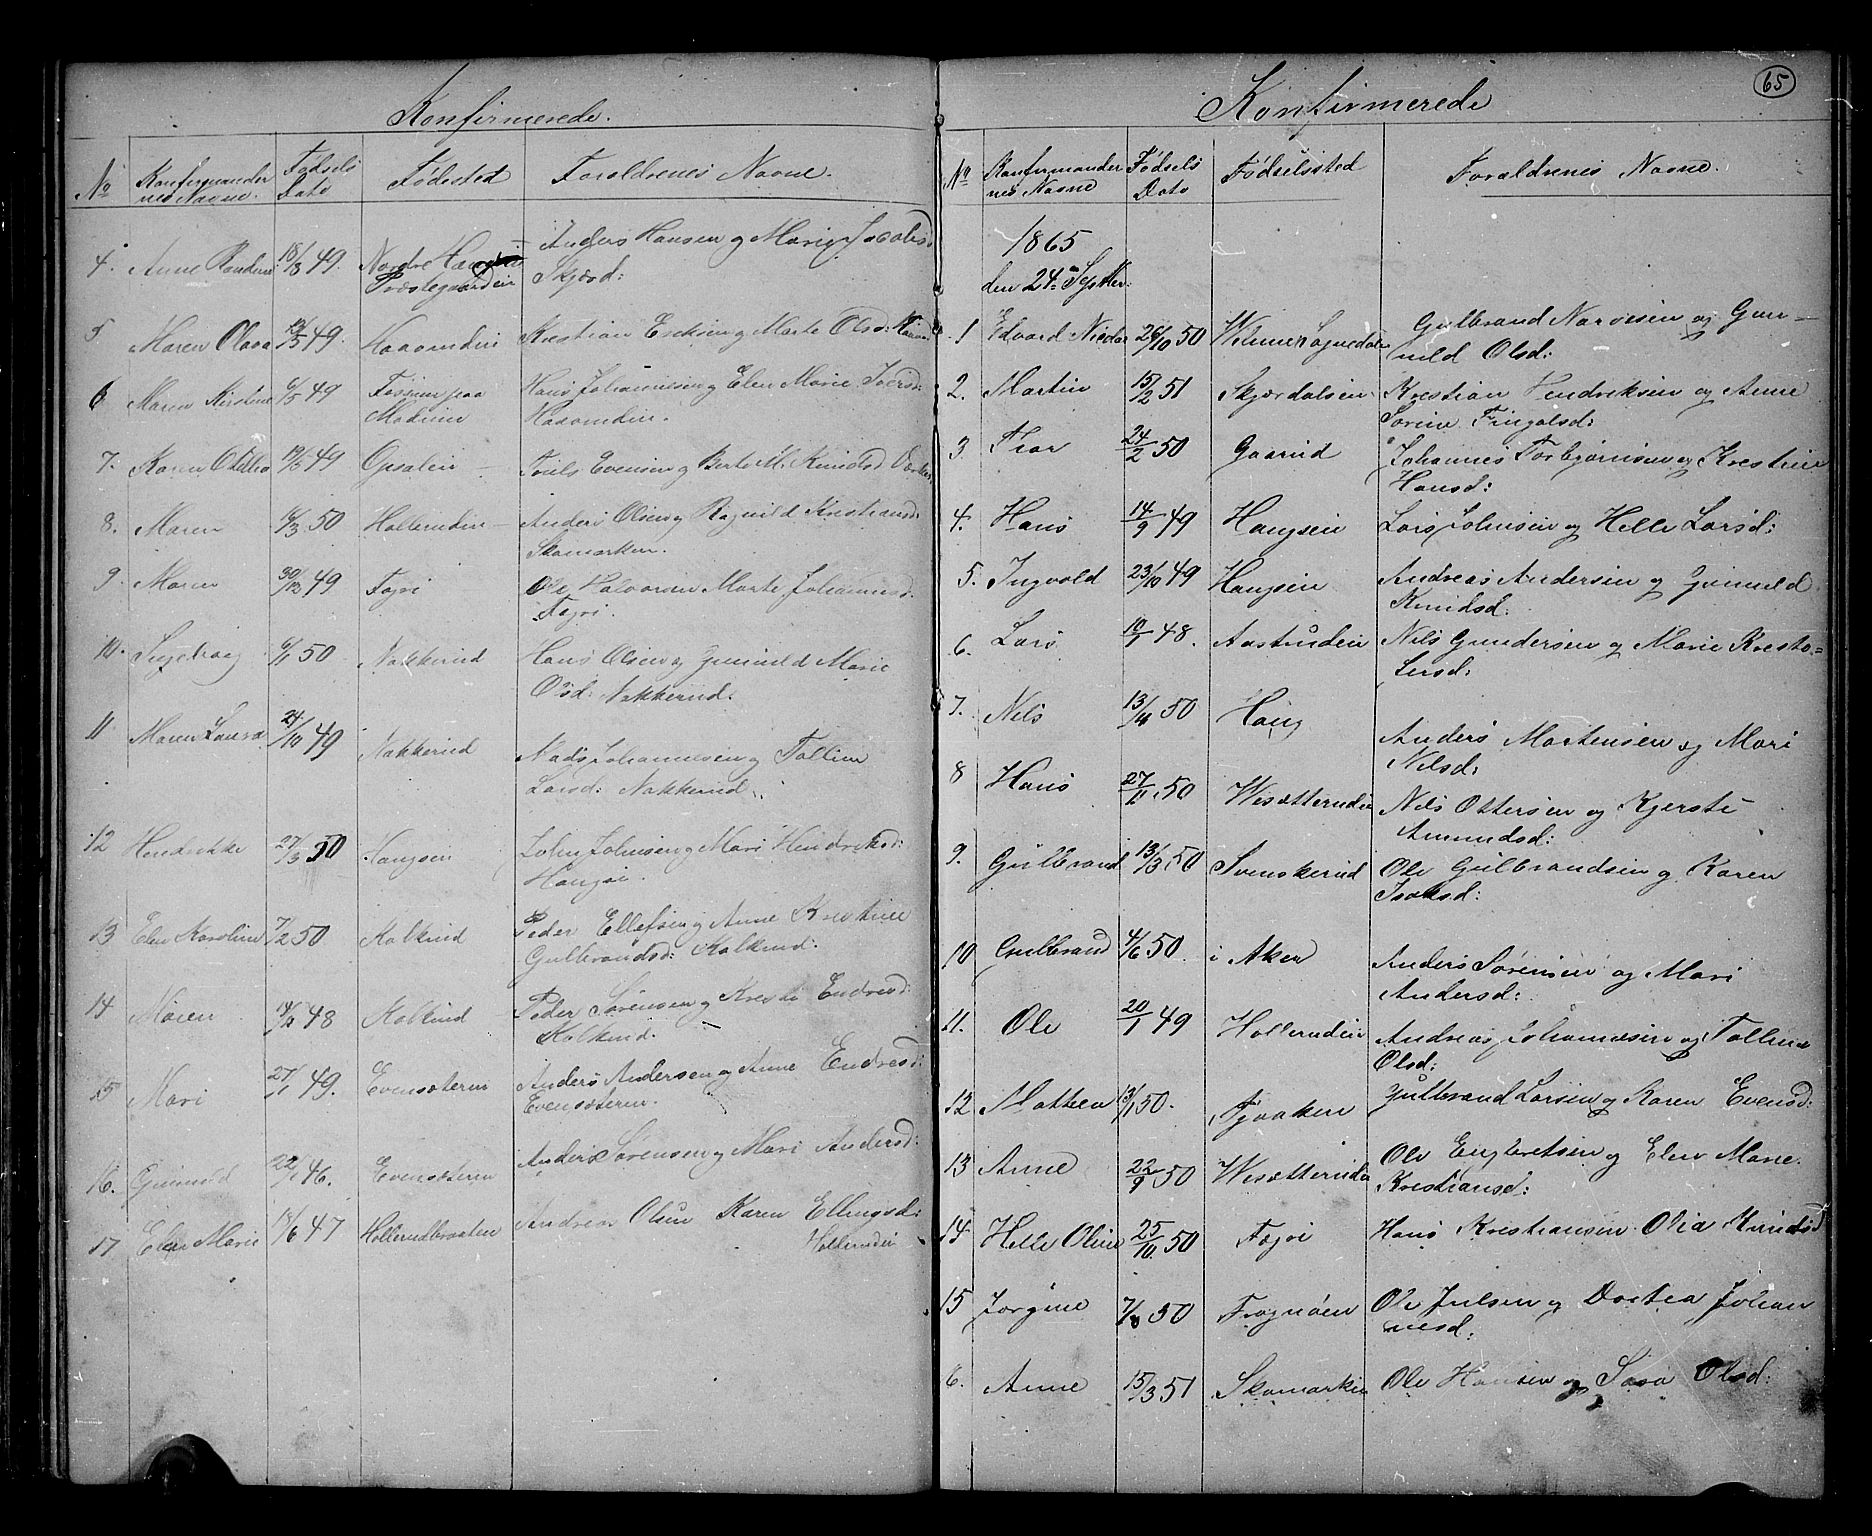 Konfirmerede.
No
Konfirmander
nes Navne.
Fødsels
Dato
Fødested
Foraldrenes Navne.
4. Anne 18/8 49. Nordre Anders Hansen og Marie Jacobsd:
Præstegaarden Skjærd:
5 Maren Olava 49. Haavindin Krestian Ericksen og Marte Olsd:
6 Maren Kirstine 6/5 49 Fossum paa Hans Johannesen og Elen Marie Iversd:
Modum
7. Karen 49 Opsalen Evensen og Berte M. Knudsd:
8. Maren 50 Hollerudin Anders Olsen og Ragnild Kristiansd:
Skamarken.
9. Maren 30/12 49 Fagri Ole Halvorsen Marte Johannesd:
Fagri.
10. Ingeborg 50 Nakkerud Hans Olsen og Gunnild Marie
Olsd: Nakkerud.
11 Maren Laura 24/10 49 Nakkerud Mads Johannesen og Talline
Larsd: Nakkerud.
12 Hendrikke 27/3 50 Haugsen John Johnsen og Mari Hendriksd:
13 Elen Karoline 7/2 50 Kalkind Peder Ellefsen og Anne Krestine
Gulbrandsd: Kalkind:
14 Maren 48 Kalkind Peder Sørensen og Kresti Endresd:
Kalkind.
15 Mari 27/1 49. Evensæteren Anders Andersen og Anne Endresd:
Evensæteren.
16. Gunnild 22/1 46. Evensæteren Anders Sørensen og Mari Andersd:
17 Elen Marie 18/6 47 Hollerudbraaten Andreas Olsen Karen Ellingsd:
Hollerudei
65
Konfirmerede
No
Konfirmander
nes Navne
Fødsels
Dato
Fødselssted
Forældrenes Navne.
1865
den 24. Septbr:
1 Edvard Nicolai 26/10 50 Gulbrand Narvesen og Gun-
nild Olsd:
2. Martin 15/2 51 Skjærdalsen Krestian Hendriksen og Anne
Sorine Fingalsd:
3 Thor 24/2 50 Gaarud Johannes Torbjørnsen og Krestine
Hansd:
4. Hans 14/9 49 Haugsen Lars Johnsen og Helle Larsd:
5. Ingvald 23/10 49 Haugsen Andreas Andersen og Gunnild
Knudsd:
6. Lars 10/1 48. Aastruden Nils Gundersen og Marie Kresto-
fersd:
7. Nils 50 Haug Anders Mortensen og Mari
Nilsd:
8 Hans 27/11 50 Wesætteruden Nils Ottersen og Kjersti
Amundsd:
9. Gulbrand 13/3 50 Svenskerud Ole Gulbrandsen og Karen
Isaksd:
10 Gulbrand 4/6 50. i Aken Anders Sørensen og Mari
Andersd:
11. Ole 20/1 49 Hollerudein Andreas Johannesen og Talline
Olsd:
12 Mathea 13/1 50. Gulbrand Larsen og Karen Evensd:
13 Anne 22/9 50 Wesætteruden Ole Engbretsen og Elen Marie
Krestiansd:
14 Helle Oline 25/10 50 Fagri Hans Krestiansen Olia Knudsd
15 Jorgine 7/8 50 Frognøen Ole Julsen og Dortea Johan
nesd:
6. Anne 15/3 51 Skamarken Ole Hansen og Sara Olsd: